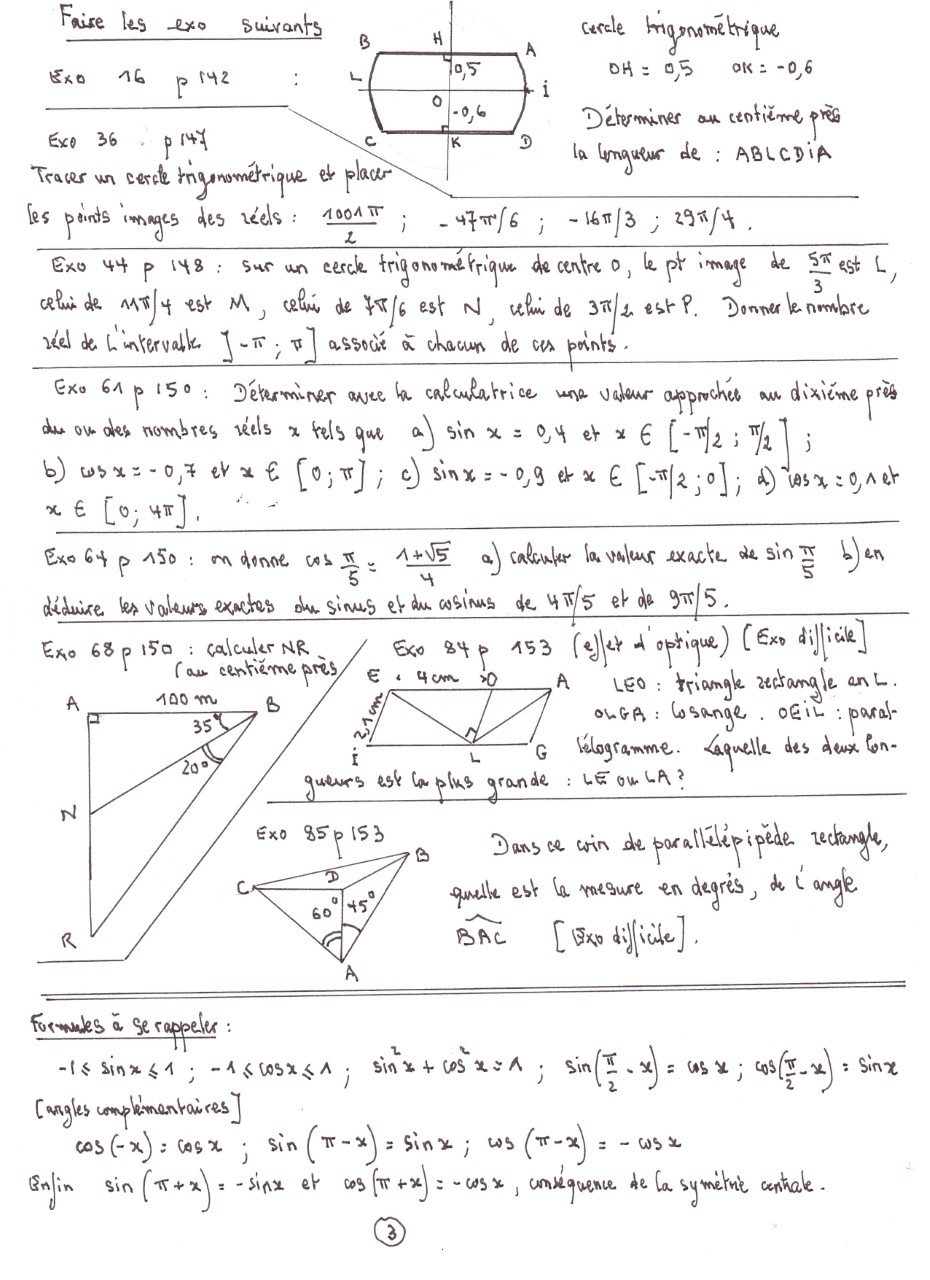 Faire les exo suivants
Exo 16 p 142 :
B H A
L 0,5 O i
-0,6
C K D
cercle trigonométrique
OH = 0,5 OK = -0,6
Déterminer au centième près
la longueur de : ABLCDiA
Exo 36 . p 147
Tracer un cercle trigonométrique et placer
les points images des réels : 1001π/2 ; -47π/6 ; -16π/3 ; 29π/4 .
Exo 44 p 148 : sur un cercle trigonométrique de centre O, le pt image de 5π/3 est L,
celui de 11π/4 est M, celui de 7π/6 est N, celui de 3π/2 est P. Donner le nombre
réel de l'intervalle ]-π ; π] associé à chacun de ces points.
Exo 61 p 150 : Déterminer avec la calculatrice une valeur approchée au dixième près
du ou des nombres réels x tels que a) sin x = 0,4 et x ∈ [-π/2 ; π/2] ;
b) cos x = -0,7 et x ∈ [0 ; π] ; c) sin x = -0,9 et x ∈ [-π/2 ; 0] ; d) cos x = 0,1 et
x ∈ [0 ; 4π].
Exo 64 p 150 : on donne cos π/5 = (1+√5)/4 a) calculer la valeur exacte de sin π/5 b) en
déduire les valeurs exactes du sinus et du cosinus de 4π/5 et de 9π/5.
Exo 68 p 150 : calculer NR
(au centième près
A 100 m B
35°
20°
N
R
Exo 84 p 153 (effet d'optique) [Exo difficile]
E 4 cm O A
2,1 cm
i L G
LEO : triangle rectangle en L.
OLGA : losange . OEiL : paral-
lélogramme. Laquelle des deux lon-
gueurs est la plus grande : LE ou LA ?
Exo 85 p 153
B
C D
60° 45°
A
Dans ce coin de parallélépipède rectangle,
quelle est la mesure en degrés, de l'angle
BAC [Exo difficile].
Formules à se rappeler :
-1 ≤ sin x ≤ 1 ; -1 ≤ cos x ≤ 1 ; sin² x + cos² x = 1 ; sin(π/2 - x) = cos x ; cos(π/2 - x) = sin x
[angles complémentaires]
cos(-x) = cos x ; sin(π-x) = sin x ; cos(π-x) = - cos x
Enfin sin(π+x) = -sin x et cos(π+x) = -cos x , conséquence de la symétrie centrale.
3